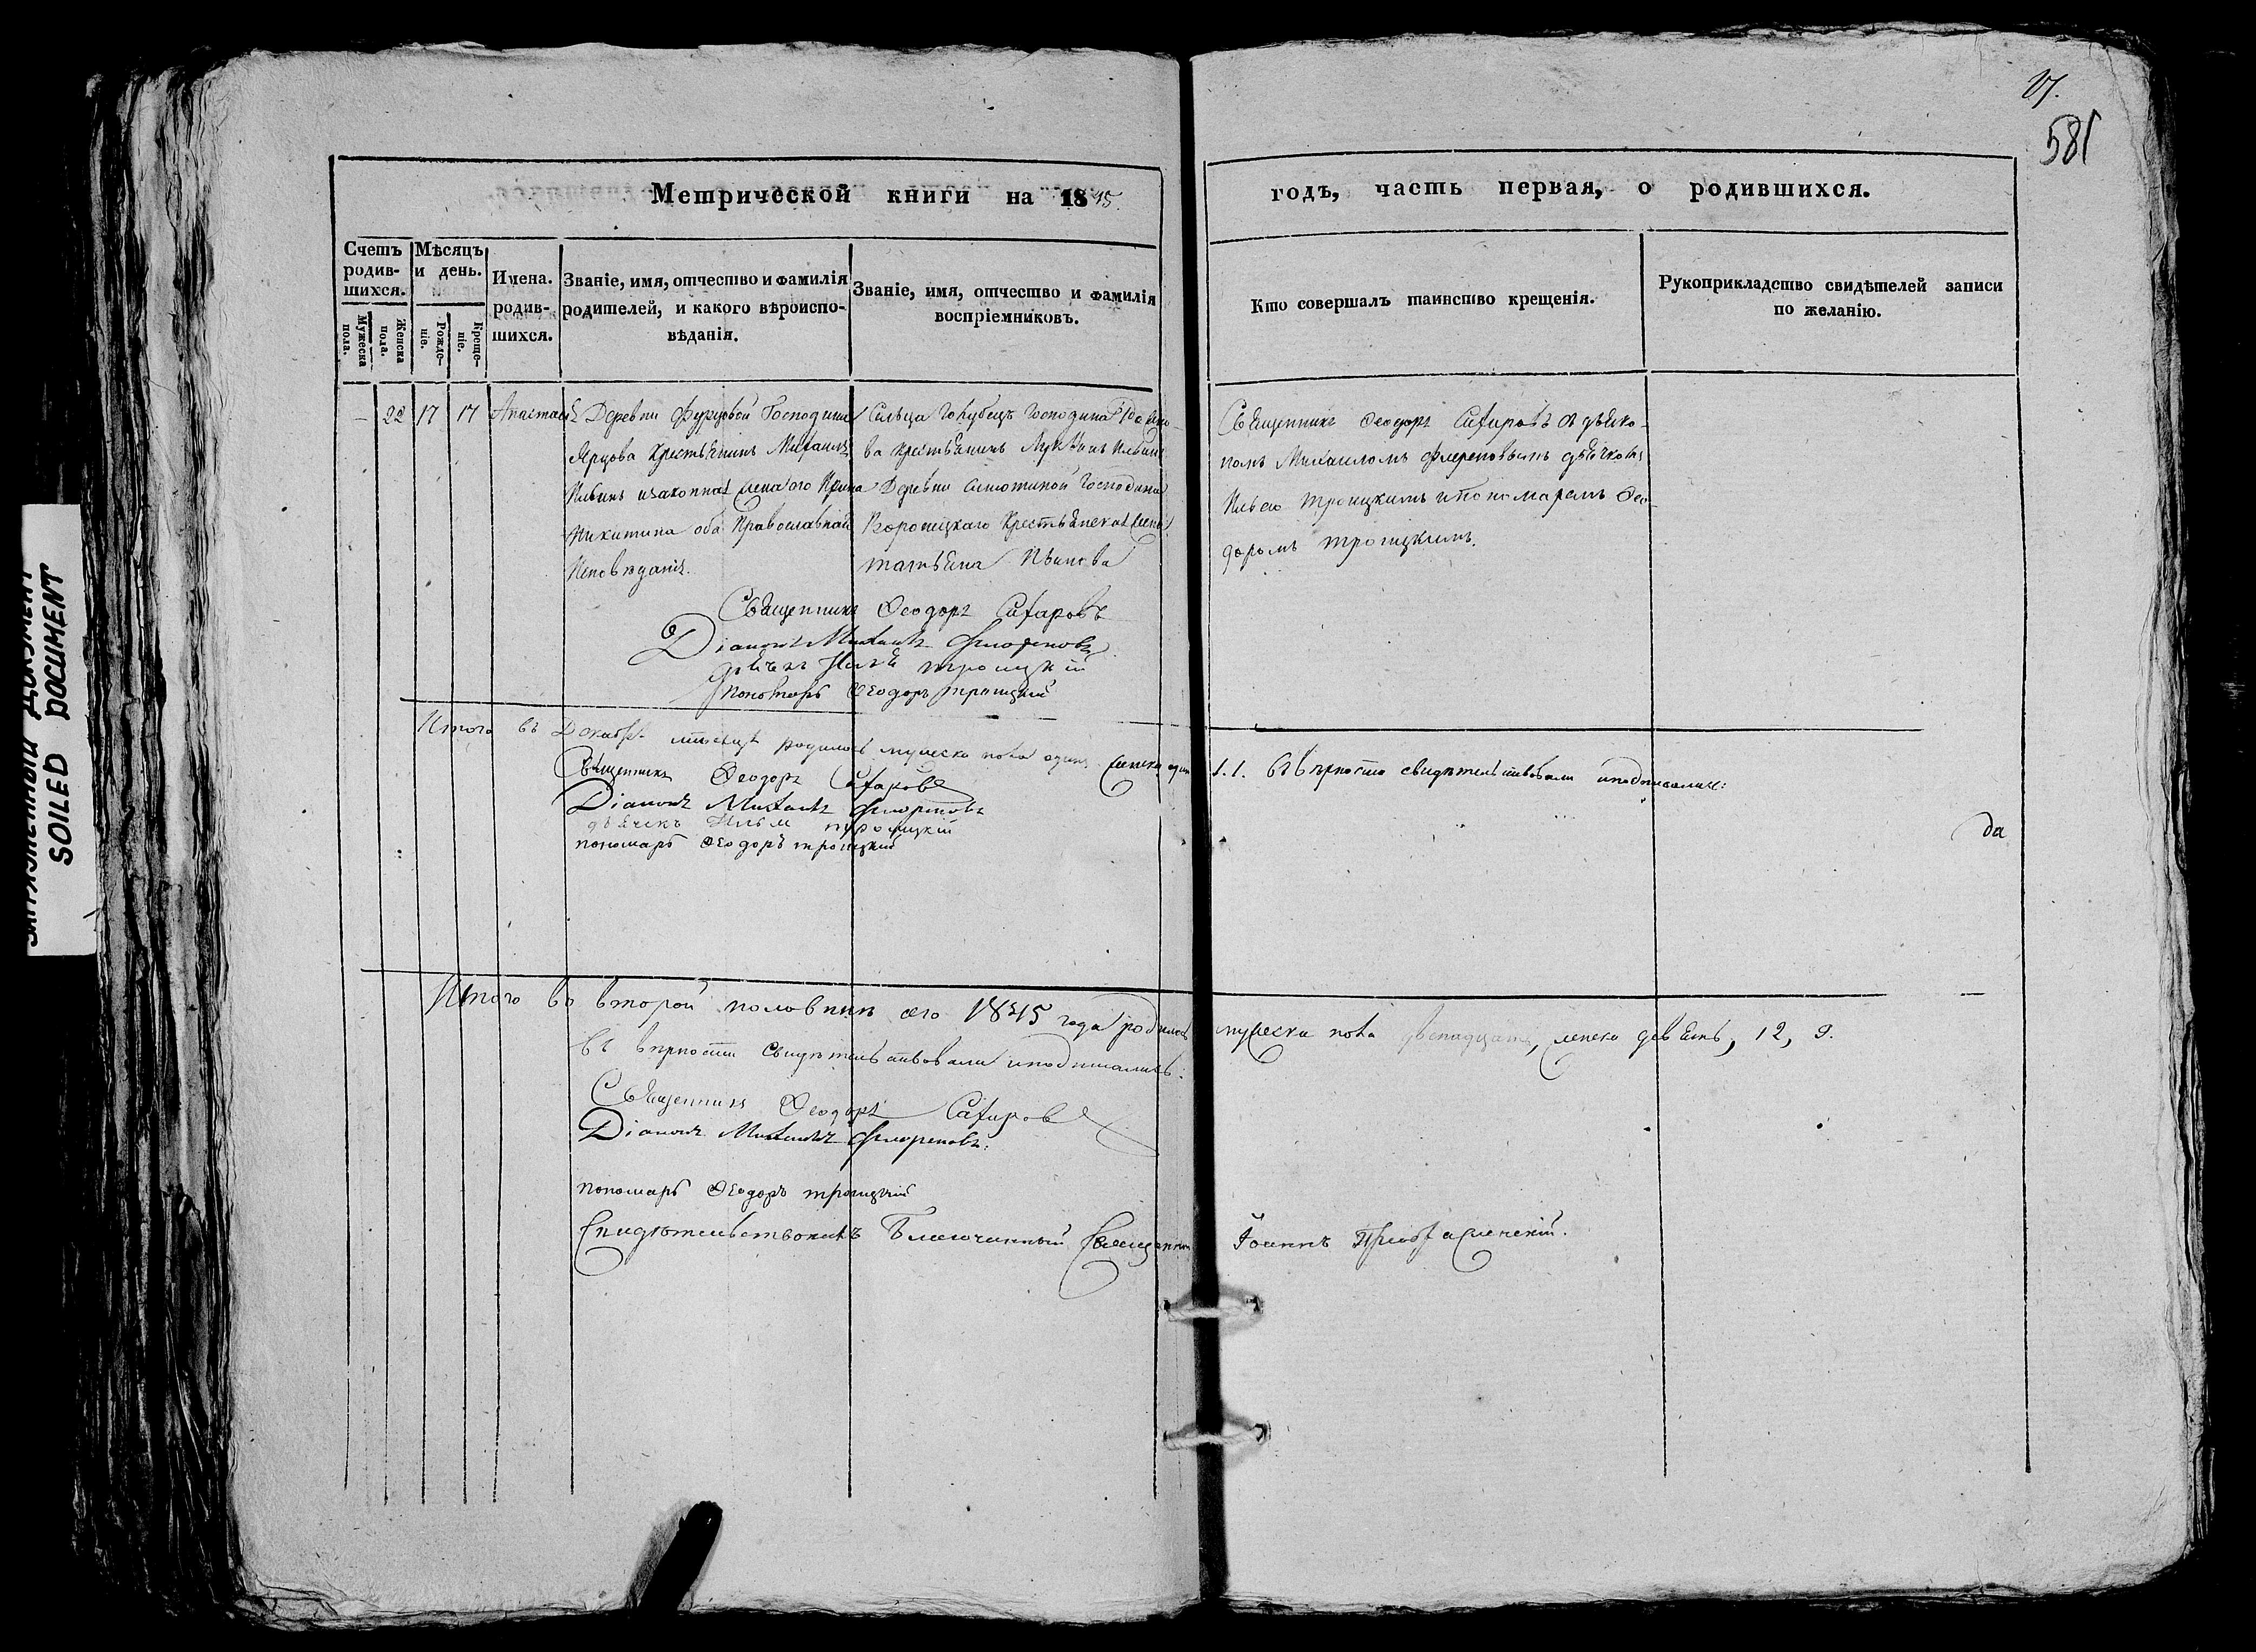 17.
581
Метрической книги на 1845.
годъ, часть первая, о родившихся.
Счетъ родив-шихся.
Мѣсяцъ и день.
Имена. родив-шихся.
Званіе, имя, отчество и фамилія родителей, и какого вѣроиспо-вѣданія.
Званіе, имя, отчество и фамилія воспріемниковъ.
Кто совершалъ таинство крещенія.
Рукоприкладство свидѣтелей записи по желанію.
Мужеска пола.
Женска пола.
Рожде-ніе.
Креще-ніе.
– 22 17 17
Деревни Фурцовой Господина
Ярцова Крестьянинъ Михаилъ
Ильинъ изаконная жена его Ирина
Никитина оба Православнаго
Исповѣданія.
Сельца Голубецъ Господина
ва крестьянинъ Ильинъ
Деревни Господина
Крестьянская жена
татьяна Иванова
Священникъ Феодоръ Сахаровъ съ дьяко-
номъ Михаиломъ дьячкомъ
Ильею троицкимъ ипономаремъ Фео-
доромъ троицкимъ.
Священникъ Феодоръ Сахаровъ
Діаконъ Михаилъ
дьячекъ Илья троицкій
Пономарь Феодоръ троицкій
Итого въ Декабрѣ мѣсяцѣ родилось мужеска пола одинъ женска одна 1. 1. Въ вѣрности свидѣтельствовали иподписались:
Священникъ Феодоръ Сахаровъ
Діаконъ Михаилъ
дьячекъ Илья троицкій
да
пономарь Феодоръ троицкій
Итого во второй половинѣ сего 1845 года родилось мужеска пола двенадцать, женска девять, 12, 9.
Въ вѣрности свидѣтельствовали иподписались:
Священникъ Феодоръ Сахаровъ
Діаконъ Михаилъ
пономарь Феодоръ троицкій
Свидѣтельствовалъ Благочинный Священникъ Іоаннъ
ЗАГРЯЗНЕННЫЙ ДОКУМЕНТ
SOILED DOCUMENT